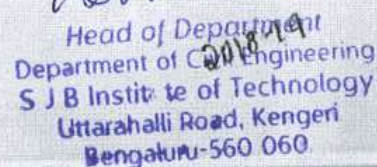 Head of Department
2018-19
Department of Civil Engineering
S J B Institute of Technology
Uttarahalli Road, Kengeri
Bengaluru-560 060.